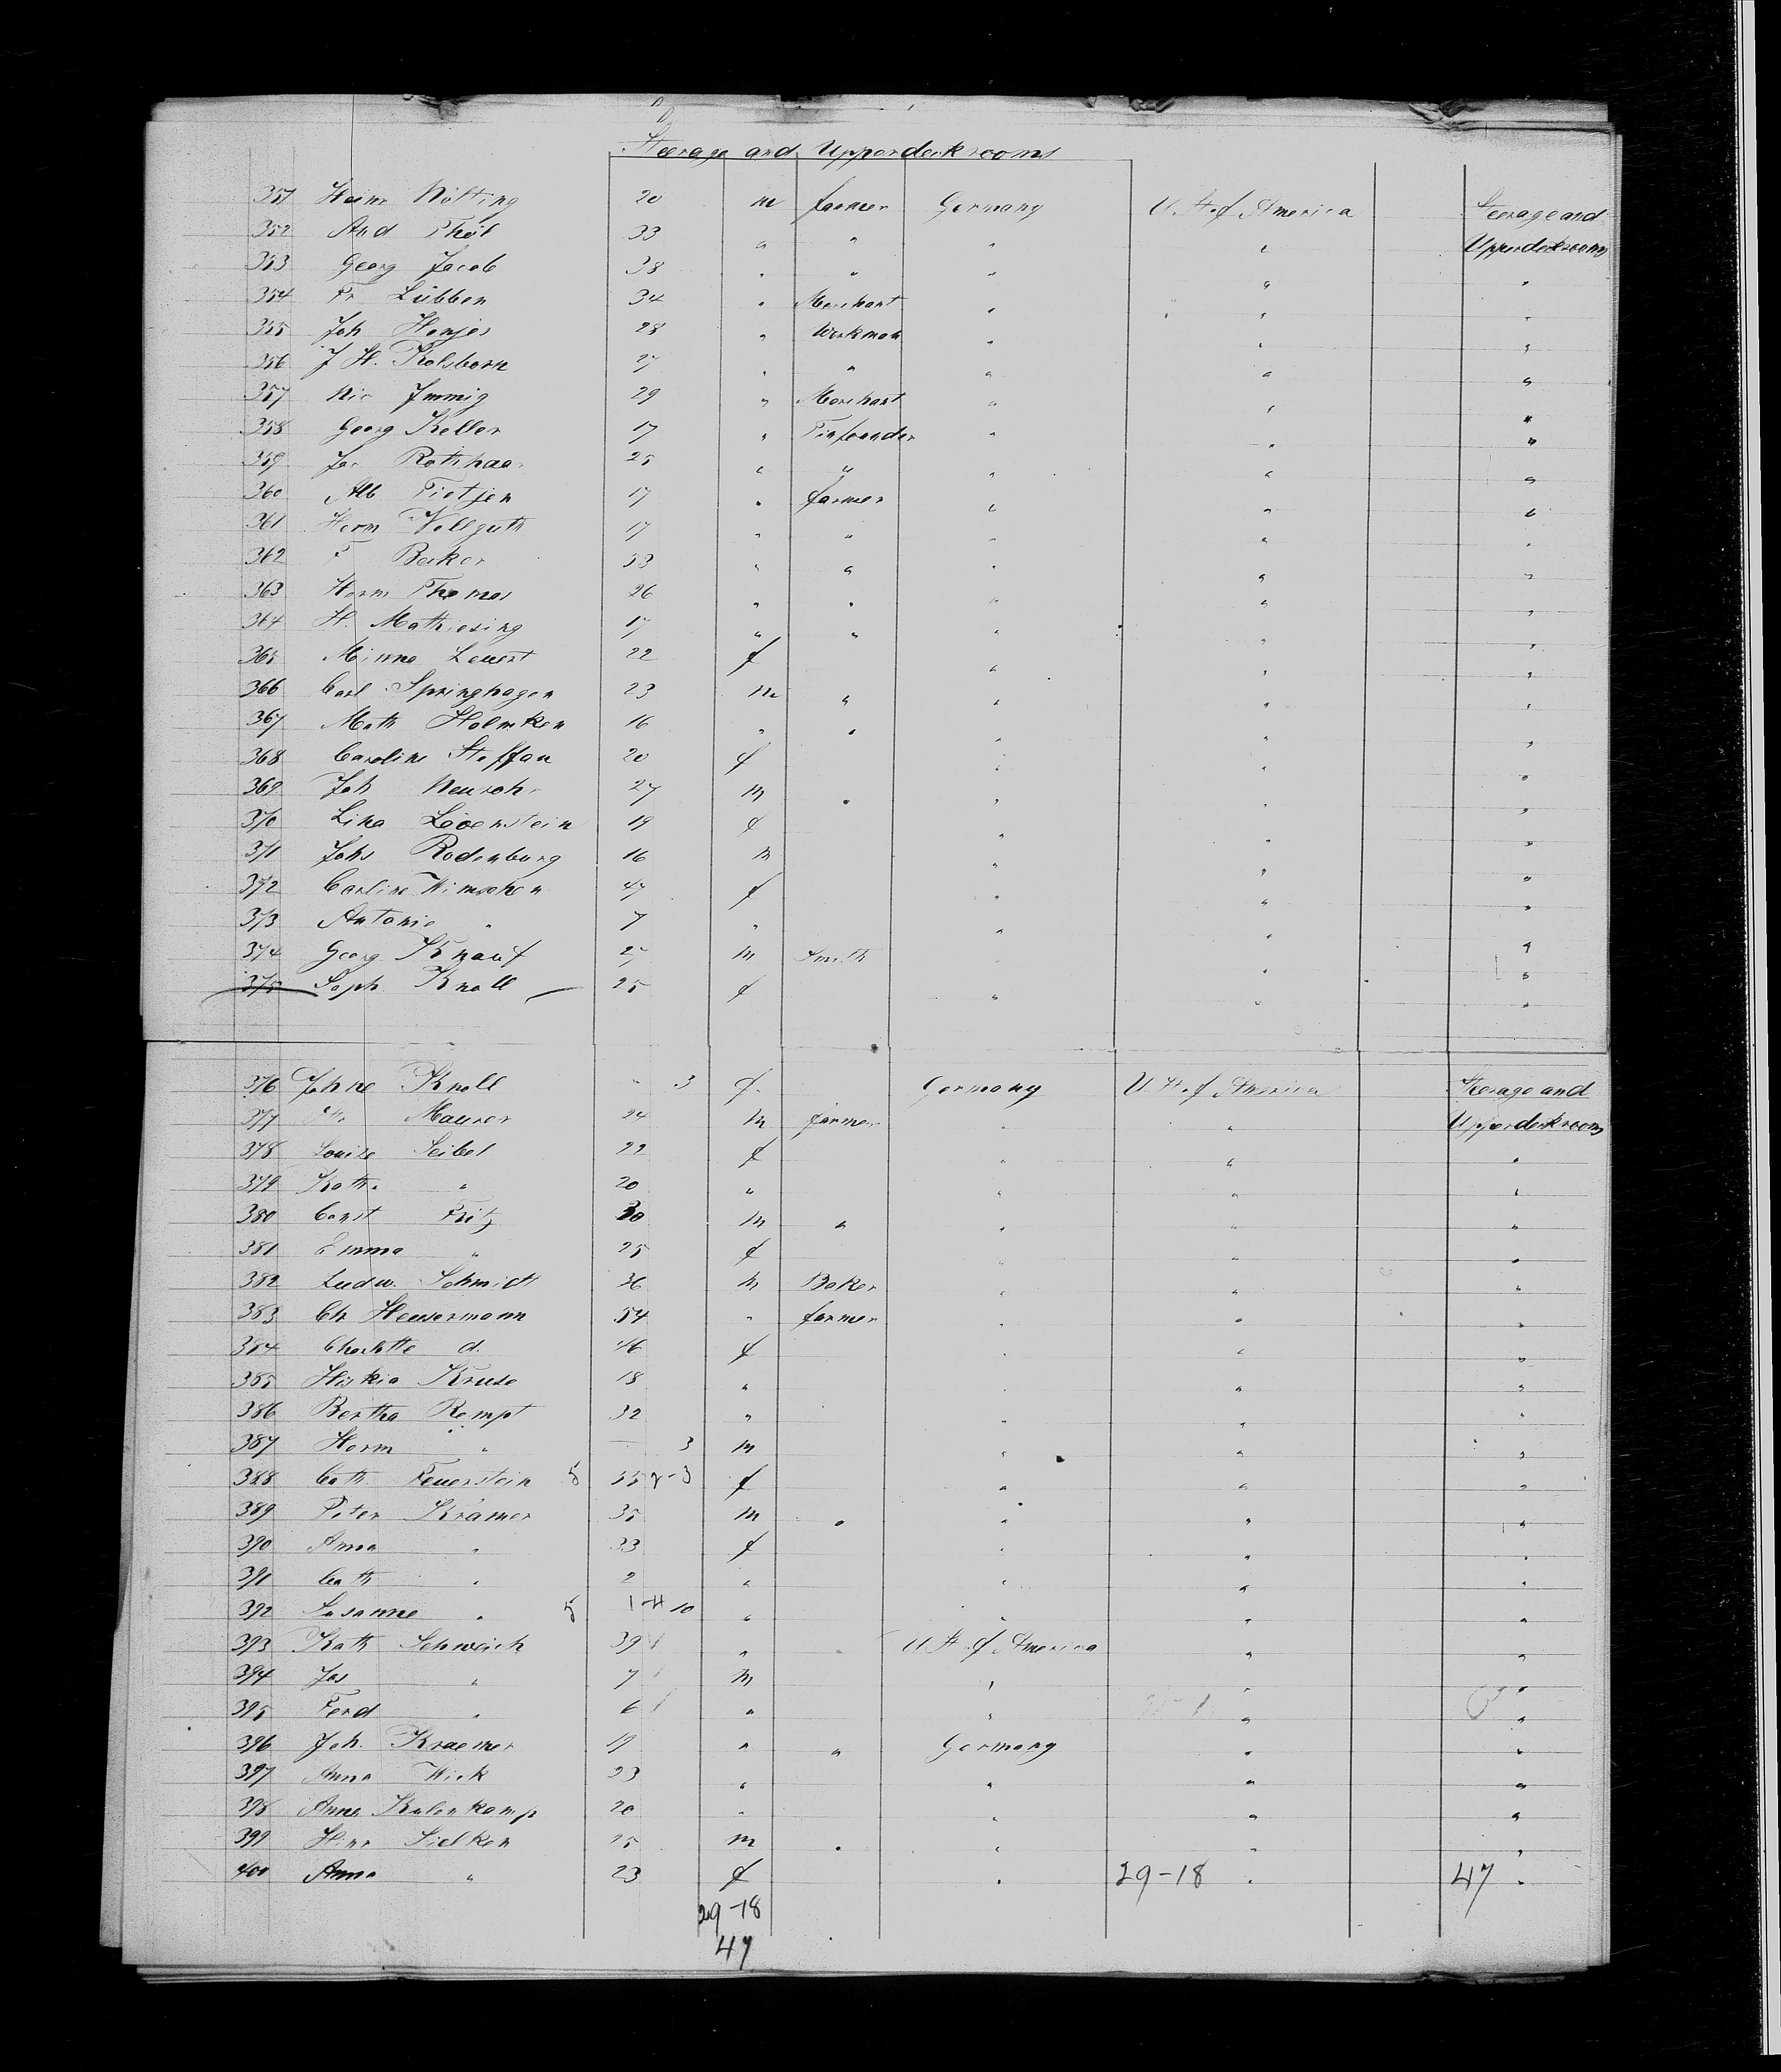 Steerage and Upperdeckrooms
351 Heinr Nölting 20 m farmer Germany U. St. of America Steerage and
352 And Thöl 33 " " " " Upperdeckrooms
353 Georg Jacob 38 " " " " "
354 Fr Lübben 34 " Merchant " " "
355 Joh Henjes 28 " Workman " " "
356 J H. Kolsborn 27 " " " " "
357 Nic Immig 29 " Merchant " " "
358 Georg Keller 17 " Tinfounder " " "
359 Rothhaar 25 " " " " "
360 Alb Tietjen 17 " farmer " " "
361 Herm Vollguth 17 " " " " "
362 F Becker 33 " " " " "
363 Herm Thomas 26 " " " " "
364 H. Mathiesing 17 " " " " "
365 Minna Leuert 22 f " " "
366 Carl Springhagen 23 m " " " "
367 Math Holmken 16 " " " " "
368 Caroline Steffan 20 f " " "
369 Joh Neurohr 27 m " " " "
370 Lina Loevenstein 19 f " " "
371 Johs Rodenburg 16 m " " "
372 Carline Wimschen 47 f " " "
373 Antonie " 7 " " " "
374 Georg Knauf 27 m Smith " " "
375 Soph. Knoll 25 f " " "
376 Johne Knoll " 3 f. Germany U. St. of America Steerage and
377 Maurer 24 m farmer " " Upperdeckrooms
378 Louise Seibel 22 f " " "
379 Kath. " 20 " " " "
380 Const Fritz 30 m " " " "
381 Emma " 25 f " " "
382 Ludw. Schmidt 36 m Baker " " "
383 Ch Heusermann 54 " farmer " " "
384 Charlotte d. 46 f " " "
385 Hiskia Kruse 18 " " " "
386 Bertha Rempt 32 " " " "
387 Herm " — 3 m " " "
388 Cath Feuerstein 5 3 f " " "
389 Peter Krämer 35 m " " " "
390 Anna " 33 f " " "
391 Cath " 2 " " " "
392 Susanne " 5 10 " " " "
393 Kath Schweich 39 " " U St. of America " "
394 Jos " 7 m " " "
395 Ferd " 6 " " " "
396 Joh. Kraemer 19 " " Germany " "
397 Anna Wick 23 " " " "
398 Anna Kalenkamp 20 " " " "
399 Hinr Sielken 25 m " " " "
400 Anna " 23 f " 29-18 " 47 "
29-18
47